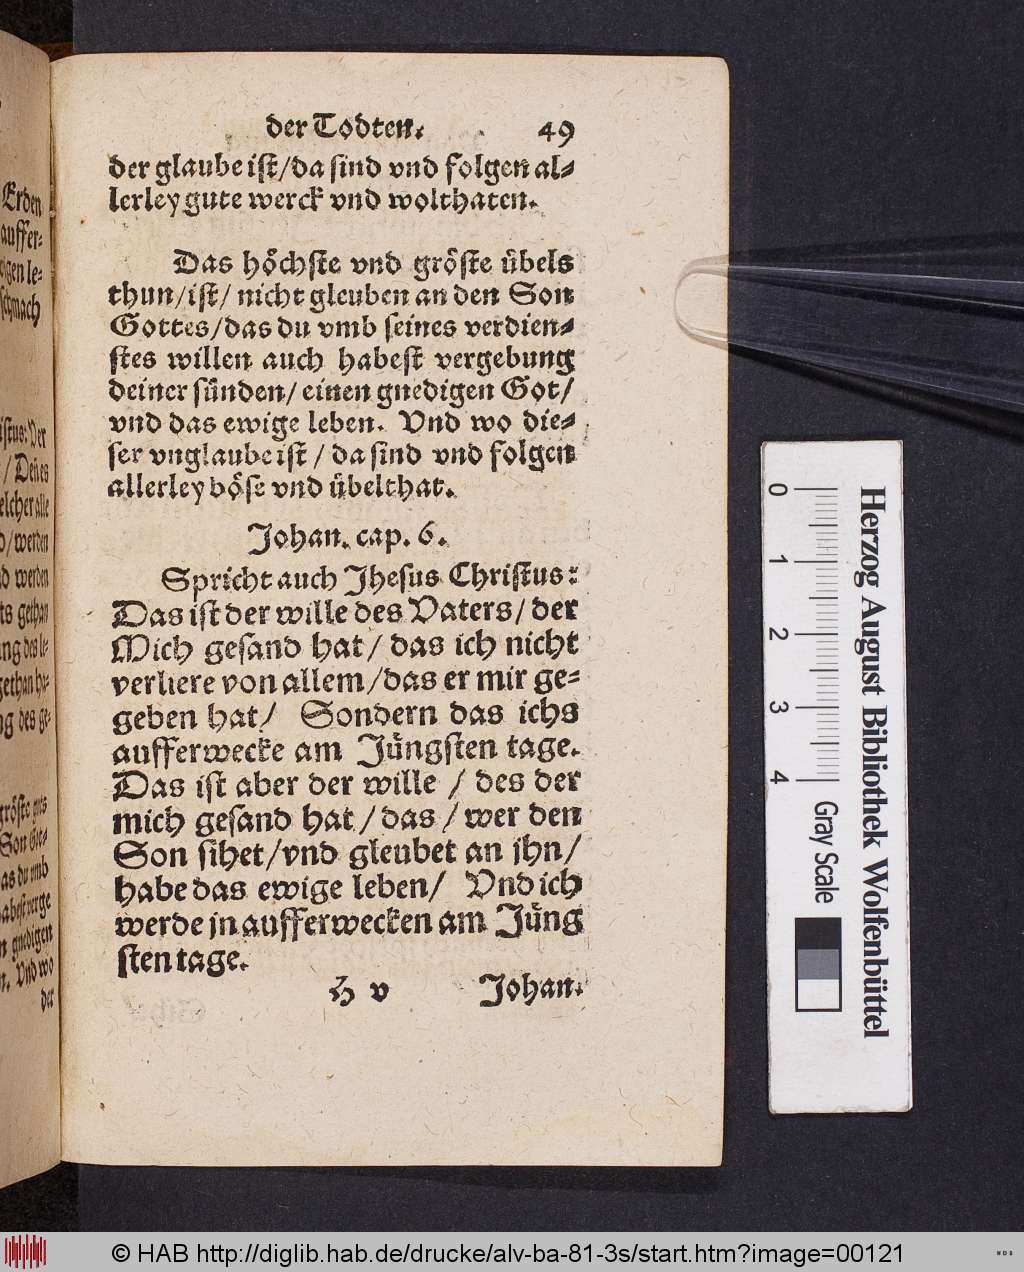 der Todten. 49
der glaube ist/da sind vnd folgen al⸗
lerley gute werck vnd wolthaten.
Das höchste vnd gröste übels
thun/ist/ nicht gleuben an den Son
Gottes/das du vmb seines verdien⸗
stes willen auch habest vergebung
deiner sünden/ einen gnedigen Got/
vnd das ewige leben. Vnd wo die⸗
ser vnglaube ist / da sind vnd folgen
allerley böse vnd übelthat.
Johan. cap. 6.
Spricht auch Jhesus Christus:
Das ist der wille des Vaters/ der
Mich gesand hat/ das ich nicht
verliere von allem/das er mir ge⸗
geben hat/ Sondern das ichs
aufferwecke am Jüngsten tage.
Das ist aber der wille / des der
mich gesand hat/das/ wer den
Son sihet/vnd gleubet an ihn/
habe das ewige leben/ Vnd ich
werde jn aufferwecken am Jüng
sten tage.
H v Johan.
Erden
auffer⸗
schmach
/ Denes
elcher alle
werden
werden
gethan
des ge⸗
gröste
Son Got⸗
as du vmb
gnedigen
Vnd wo
der
Herzog August Bibliothek Wolfenbüttel
0 1 2 3 4 Gray Scale
© HAB http://diglib.hab.de/drucke/alv-ba-81-3s/start.htm?image=00121